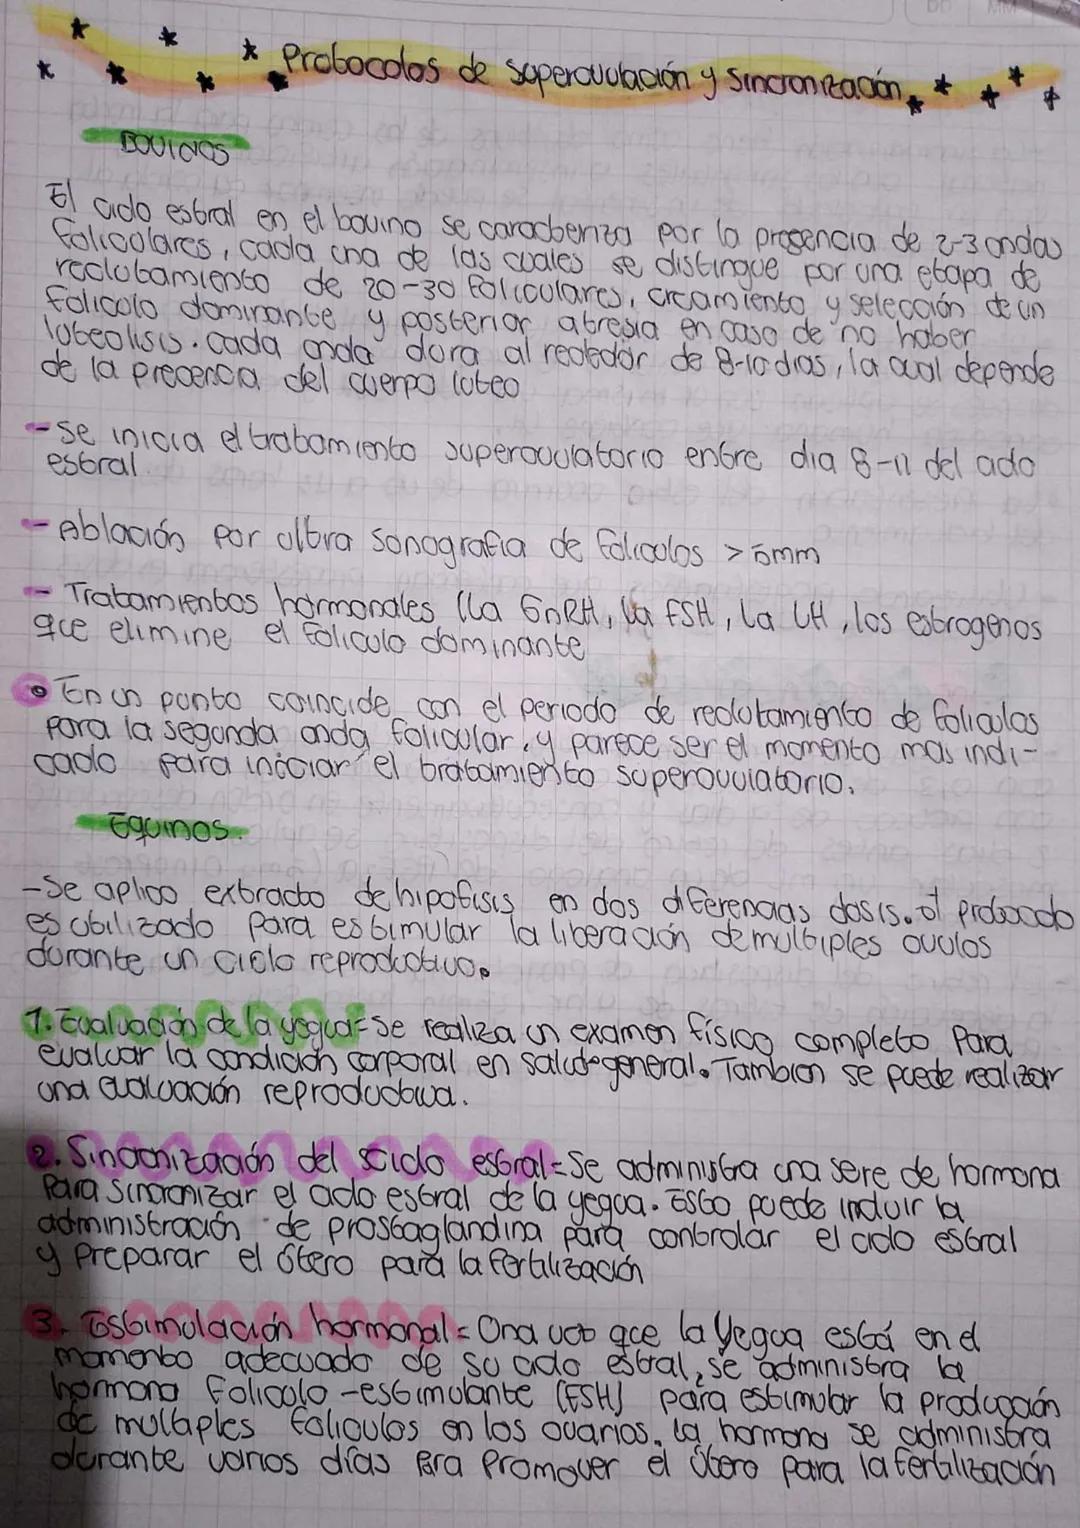 Protocolos de superovulación y sincronización
BOVINOS
El ciclo estral en el bovino se caracteriza por la presencia de 2-3 ondas
foliculares, cada una de las cuales se distingue por una etapa de
reclutamiento de 20-30 foliculares, creamiento y selección de un
folicolo dominante y posterior atresia en caso de no haber
luteolisis. cada onda dura al rededor de 8-10 dias, la cual depende
de la precencia del cuerpo luteo
- Se inicia el tratamiento superovulatorio entre dia 8-11 del ciclo
estral.
- Ablación por ultra sonografia de foliculos > 5mm
- Tratamientos hormonales (La GnRH, La FSH, La LH, los estrogenos
que elimine el foliculo dominante
• En un punto coincide con el periodo de reclutamiento de foliculos
para la segunda onda folicular, y parece ser el momento mas indi-
cado para iniciar el tratamiento superovulatorio.
Equinos.
- Se aplico extracto de hipofisis en dos diferencias dosis. el protocolo
es utilizado para estimular la liberación de multiples ovulos
durante un ciclo reproductivo.
1. Evaluación de la yegua = Se realiza un examen físico completo Para
evaluar la condición corporal en salud general. Tambien se puede realizar
una evaluación reproductiva.
2. Sincronización del ciclo estral = Se administra una sere de hormona
Para sincronizar el ciclo estral de la yegua. Esto puede incluir la
administración de prostaglandina para controlar el ciclo estral
y preparar el útero para la fertilización
3. Estimulación hormonal = Una vez que la Yegua está en el
momento adecuado de su ciclo estral, se administra la
hormona folicolo-estimulante (FSH) para estimular la producción
de multaples foliculos en los ovarios. La hormona se administra
durante varios días para promover el útero para la fertilización